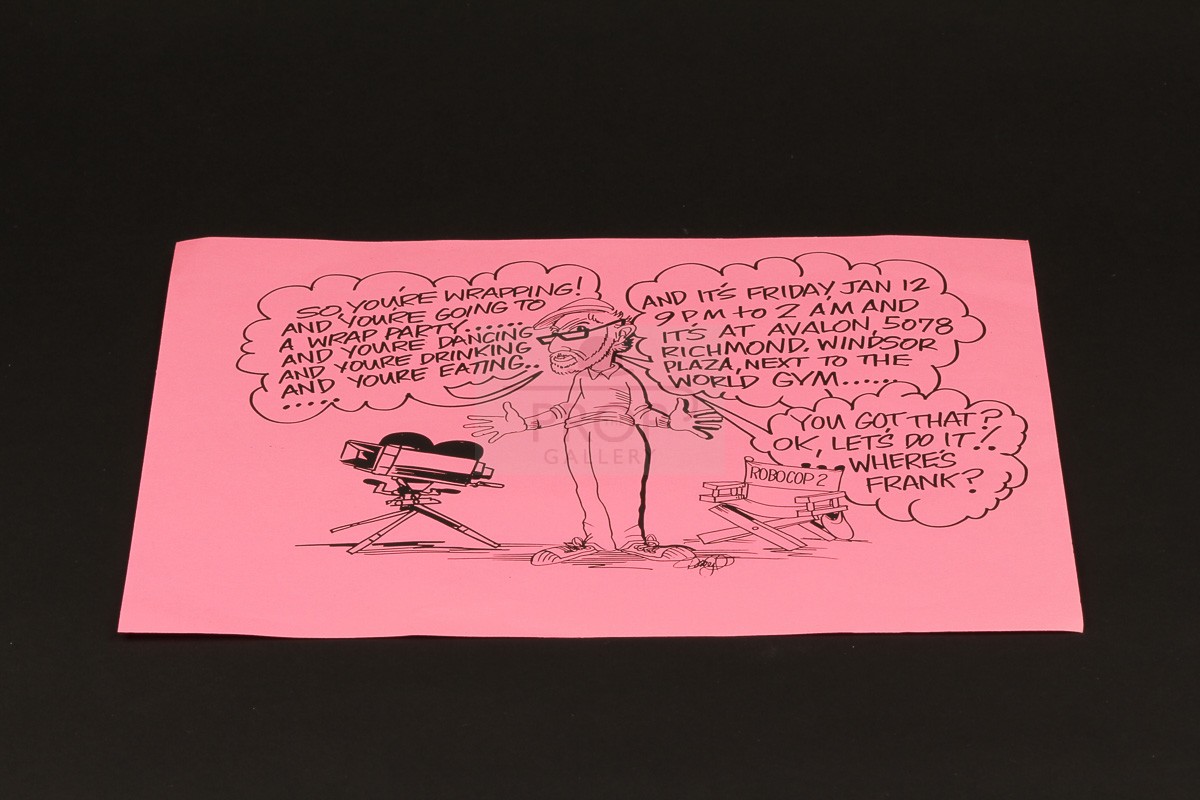 SO, YOU'RE WRAPPING!
AND YOU'RE GOING TO
A WRAP PARTY.......
AND YOU'RE DANCING
AND YOU'RE DRINKING
AND YOU'RE EATING...
.....
AND IT'S FRIDAY, JAN 12
9 PM to 2 AM AND
IT'S AT AVALON, 5078
RICHMOND. WINDSOR
PLAZA, NEXT TO THE
WORLD GYM......
YOU GOT THAT?
OK, LET'S DO IT!..
... WHERE'S
FRANK?
ROBOCOP 2
PROP
GALLERY